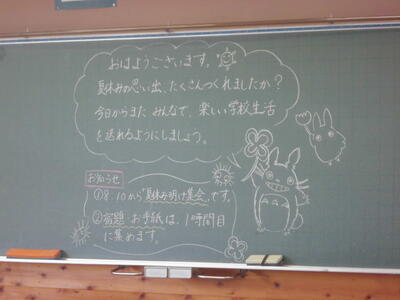 おはようございます。
夏休みの思い出、たくさんつくれましたか？
今日からまた みんなで、楽しい学校生活
を送れるようにしましょう。
お知らせ
①8:10から「夏休み明け集会」です。
②宿題・お手紙は、1時間目
に集めます。